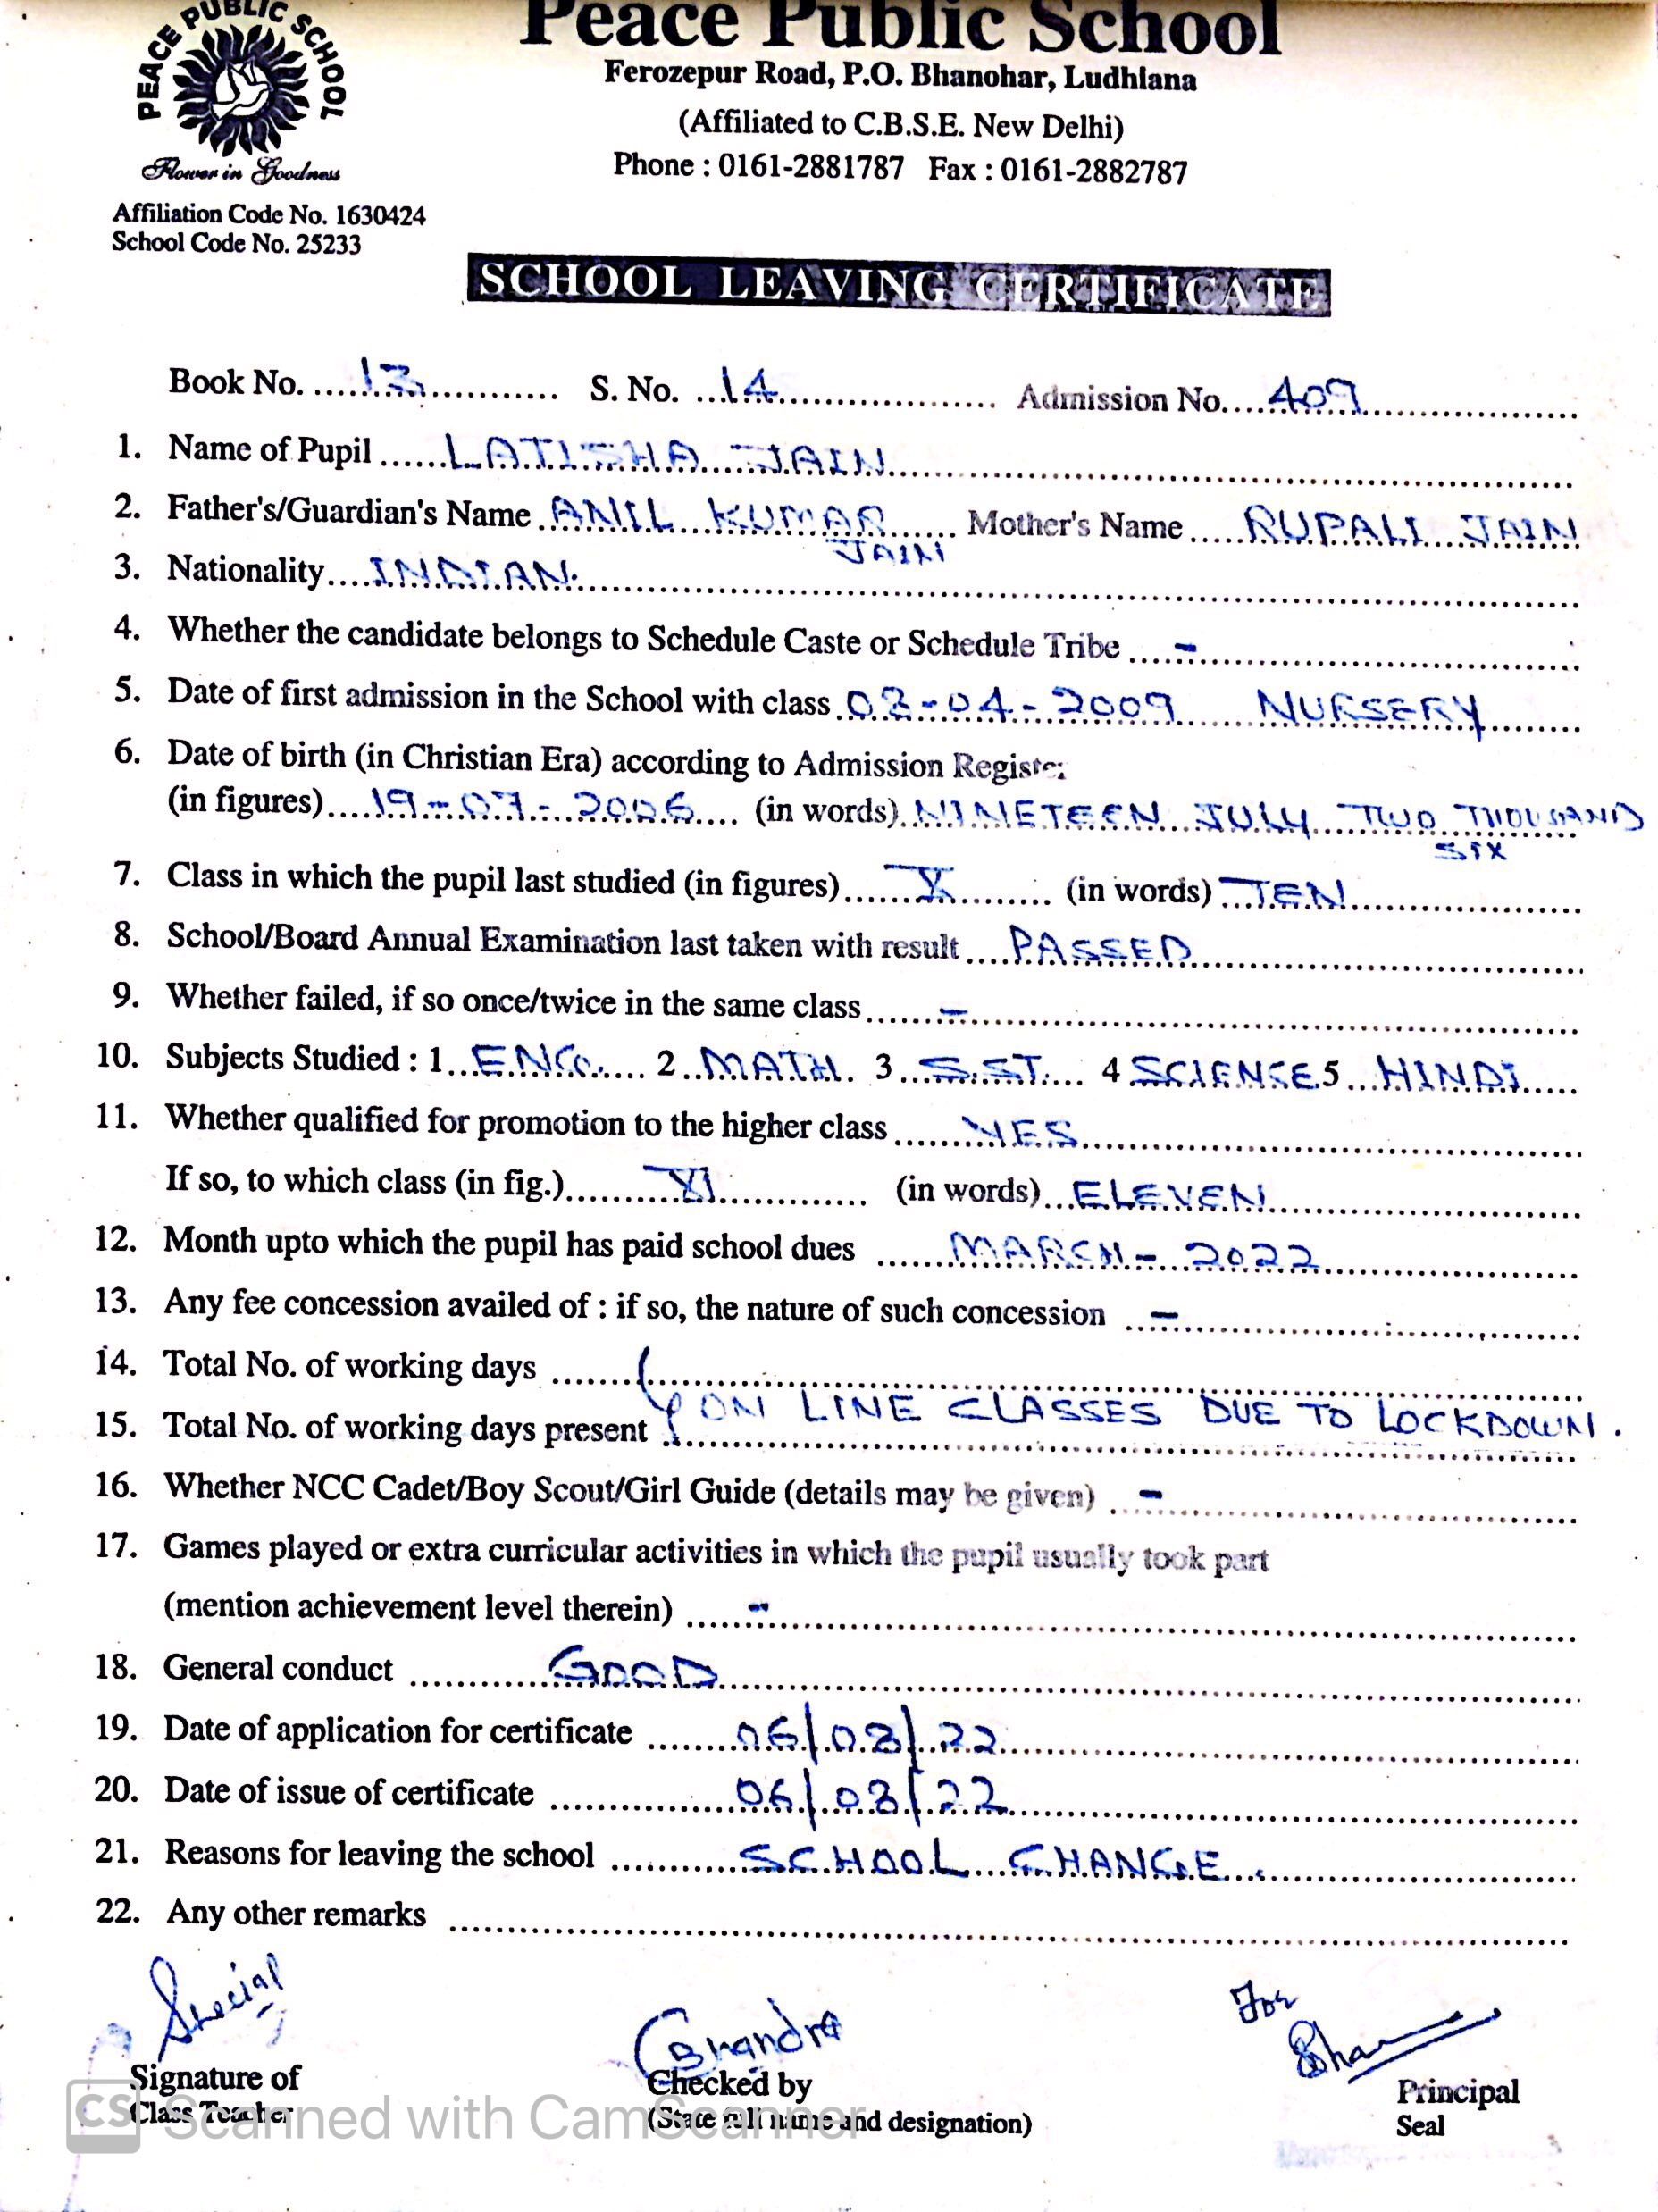 PEACE PUBLIC SCHOOL
Flower in Goodness
Peace Public School
Ferozepur Road, P.O. Bhanohar, Ludhiana
(Affiliated to C.B.S.E. New Delhi)
Phone : 0161-2881787 Fax : 0161-2882787
Affiliation Code No. 1630424
School Code No. 25233
SCHOOL LEAVING CERTIFICATE
Book No. 13 S. No. 14 Admission No. 409
1. Name of Pupil LATISHA JAIN
2. Father's/Guardian's Name ANIL KUMAR JAIN Mother's Name RUPALI JAIN
3. Nationality INDIAN
4. Whether the candidate belongs to Schedule Caste or Schedule Tribe -
5. Date of first admission in the School with class 02-04-2009 NURSERY
6. Date of birth (in Christian Era) according to Admission Register
(in figures) 19-07-2006 (in words) NINETEEN JULY TWO THOUSAND SIX
7. Class in which the pupil last studied (in figures) X (in words) TEN
8. School/Board Annual Examination last taken with result PASSED
9. Whether failed, if so once/twice in the same class -
10. Subjects Studied : 1 ENG. 2 MATH. 3 S.ST. 4 SCIENCE 5 HINDI
11. Whether qualified for promotion to the higher class YES
If so, to which class (in fig.) XI (in words) ELEVEN
12. Month upto which the pupil has paid school dues MARCH - 2022
13. Any fee concession availed of : if so, the nature of such concession -
14. Total No. of working days
15. Total No. of working days present ON LINE CLASSES DUE TO LOCKDOWN.
16. Whether NCC Cadet/Boy Scout/Girl Guide (details may be given) -
17. Games played or extra curricular activities in which the pupil usually took part
(mention achievement level therein) -
18. General conduct GOOD
19. Date of application for certificate 06/08/22
20. Date of issue of certificate 06/08/22
21. Reasons for leaving the school SCHOOL CHANGE
22. Any other remarks
For
Signature of
Class Teacher
Checked by
(State full name and designation)
Principal
Seal
CS Scanned with CamScanner